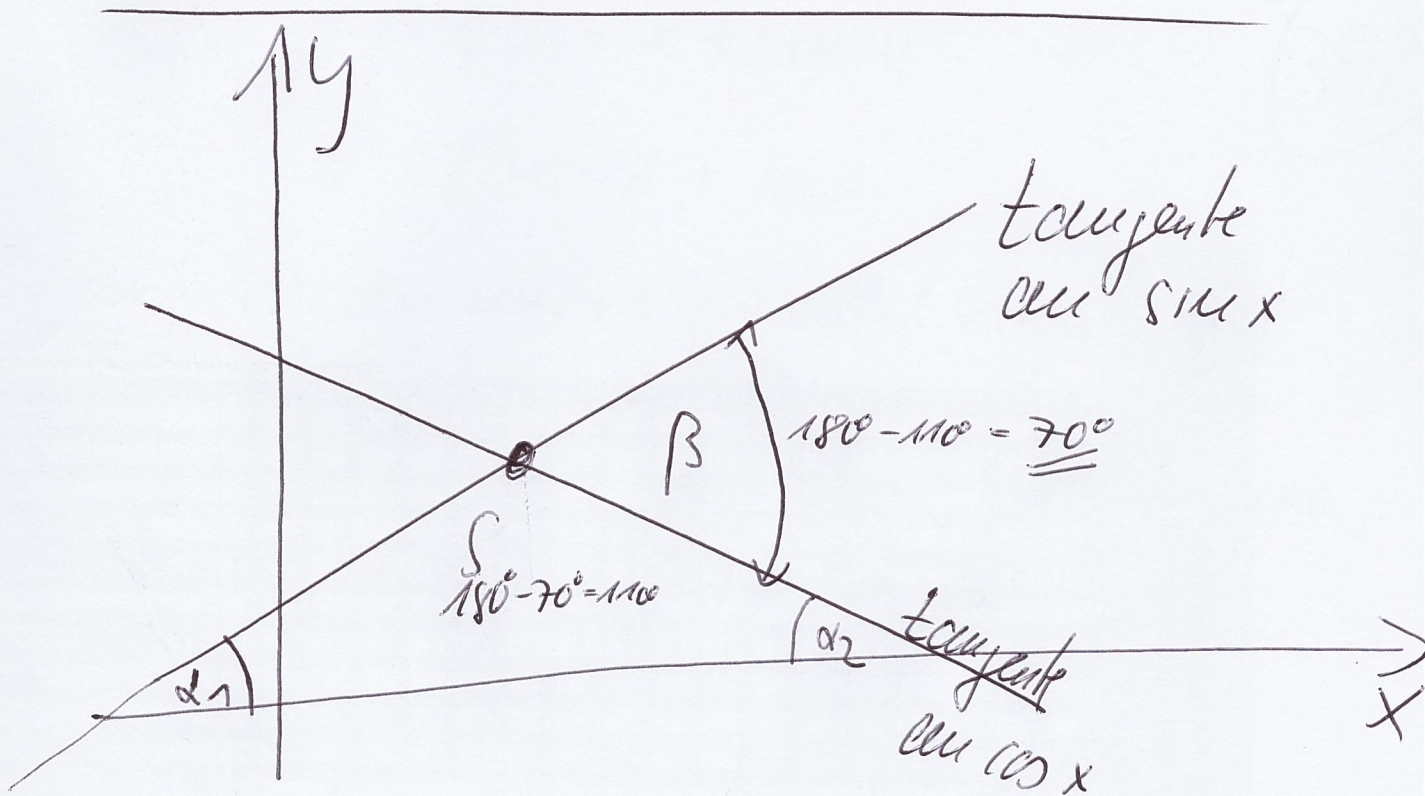 y
tangente
an sin x
β
180° - 110° = 70°
δ
180° - 70° = 110°
α1
α2
tangente
an cos x
x